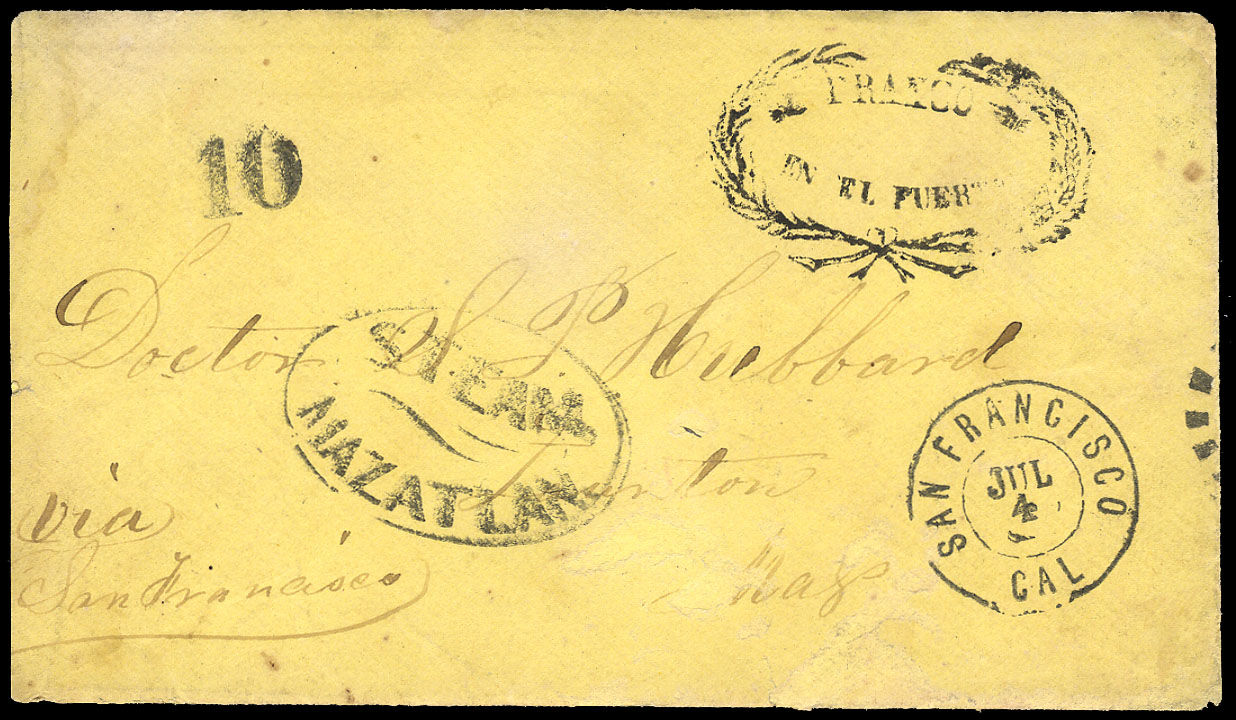 FRANCO
EN EL PUERTO
10
Doctor S. P. Hubbard
STEAM
MAZATLAN
Taunton
Mass
via
San Francisco
SAN FRANCISCO
JUL
4
CAL